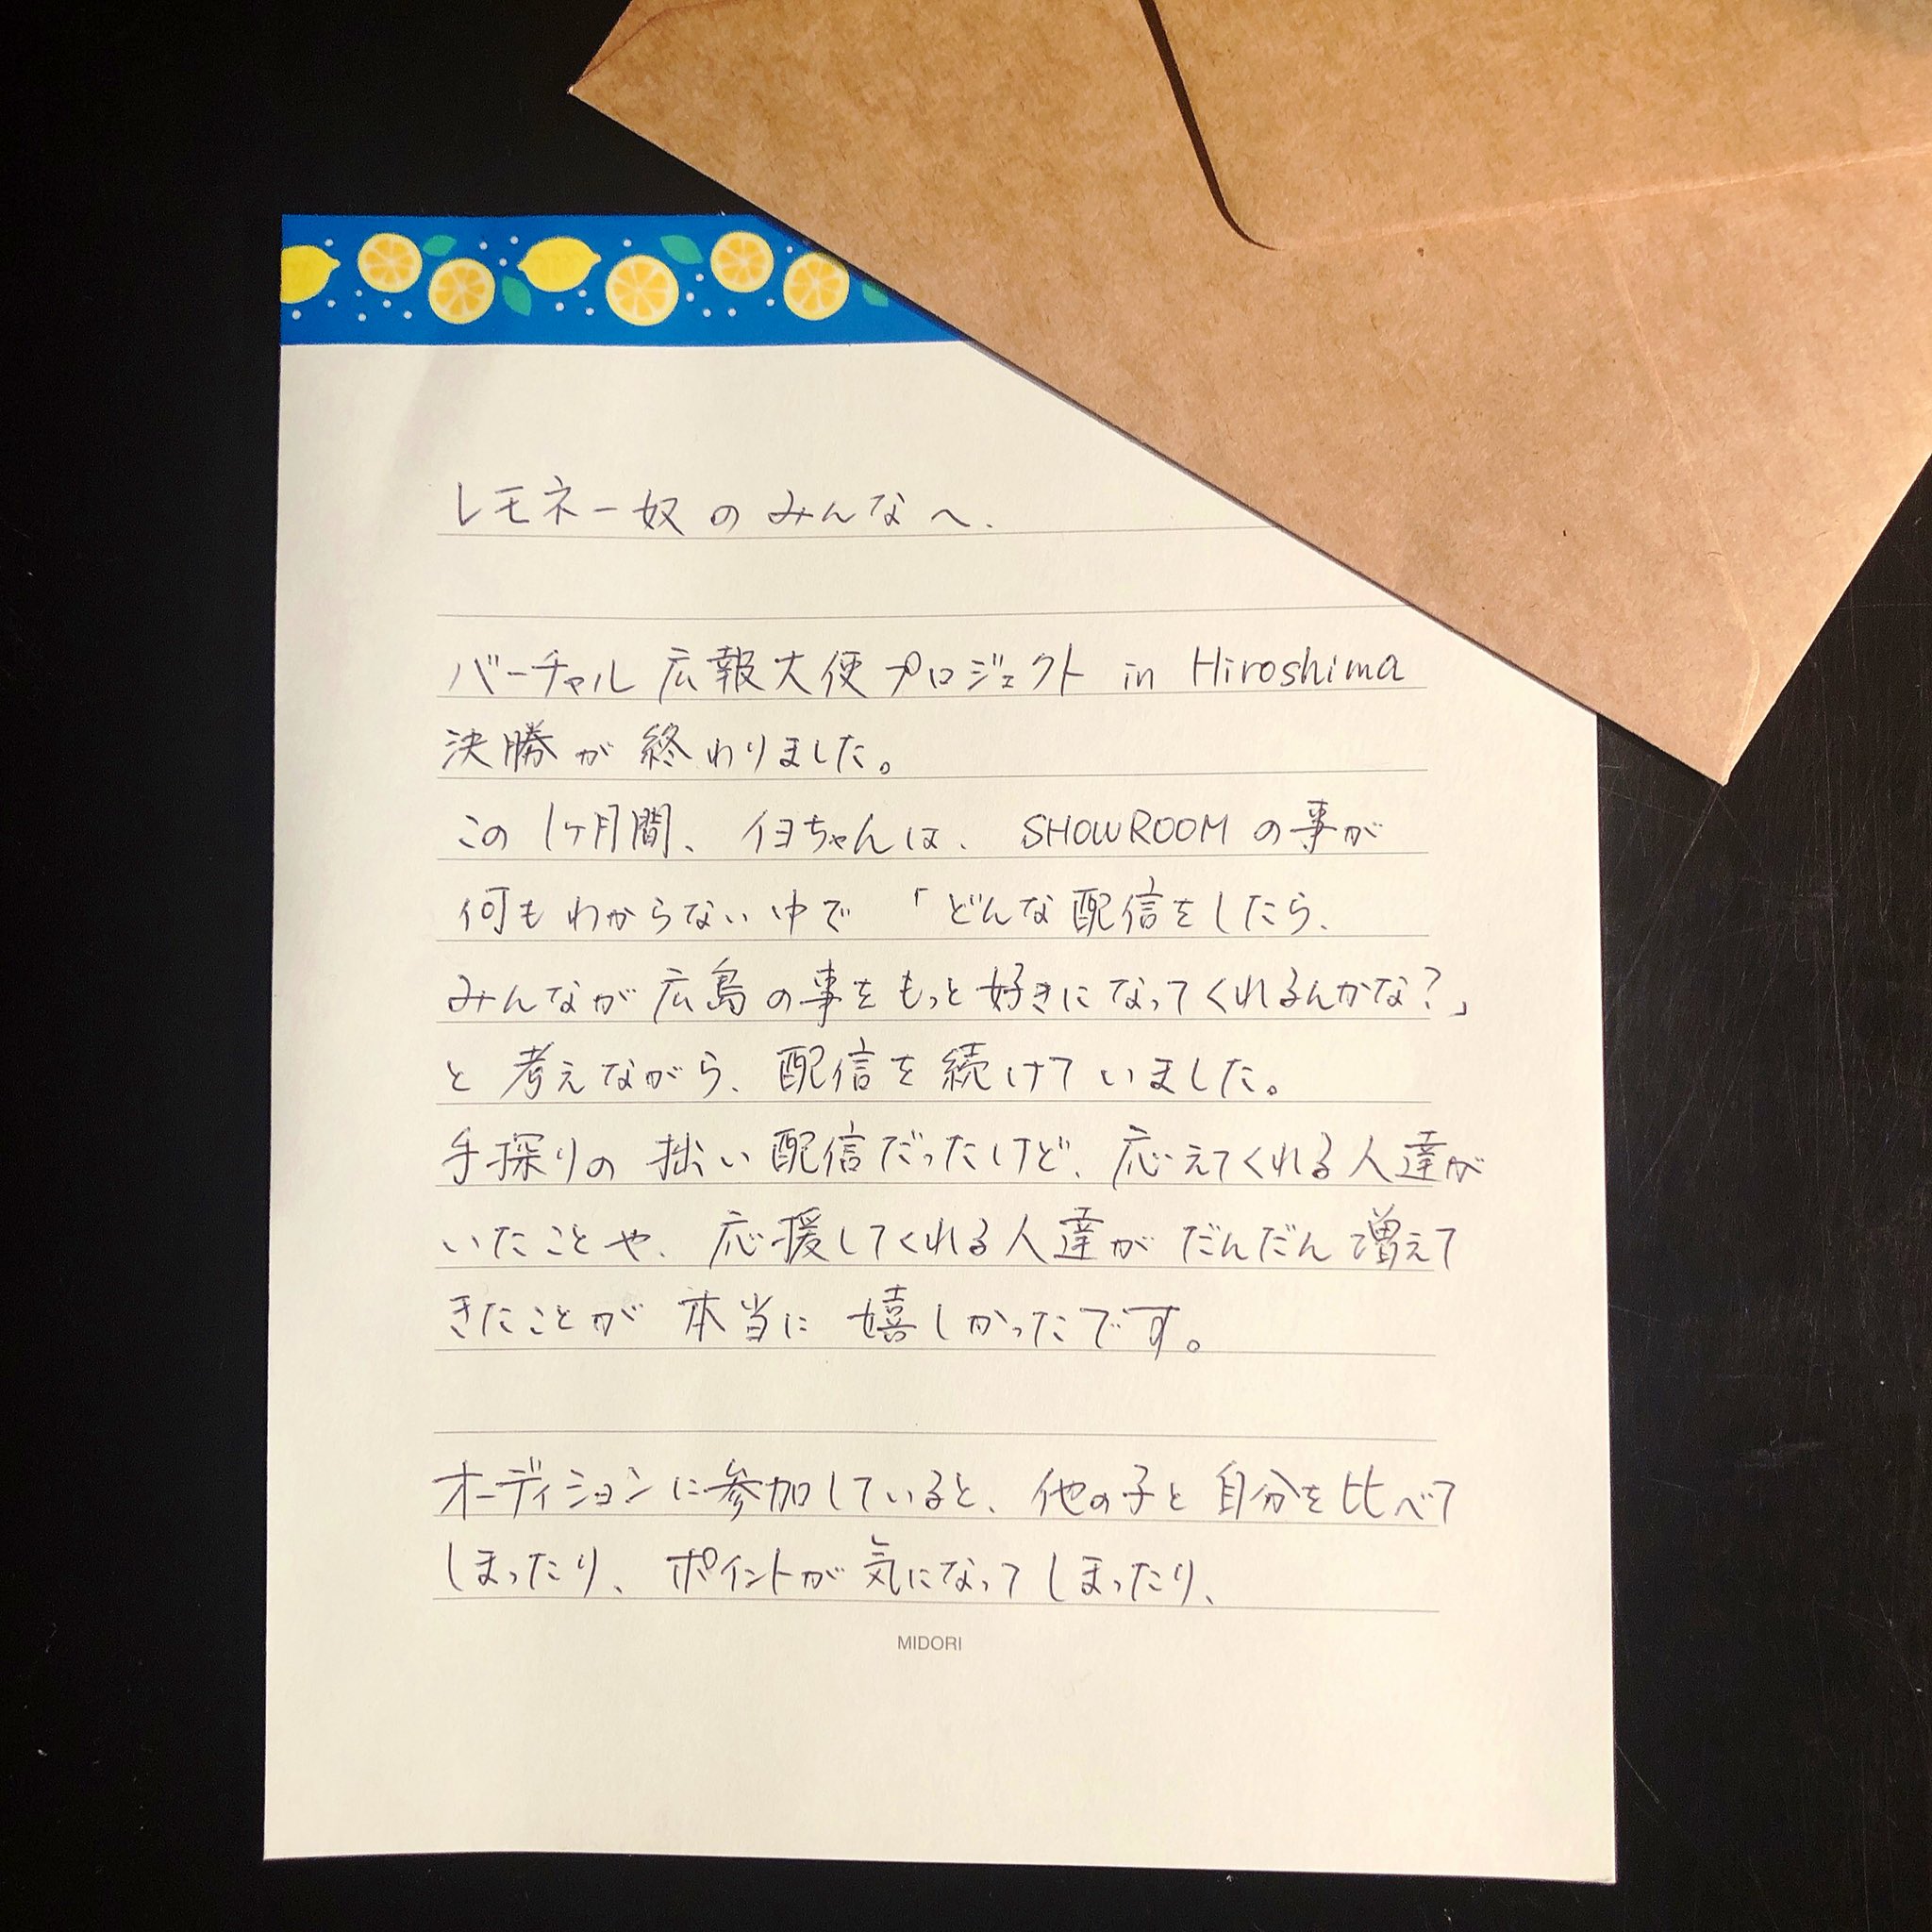 レモネー奴のみんなへ、
バーチャル広報大使プロジェクト in Hiroshima
決勝が終わりました。
この1ヶ月間、イヨちゃんは、SHOWROOMの事が
何もわからない中で「どんな配信をしたら、
みんなが広島の事をもっと好きになってくれるんかな?」
と考えながら、配信を続けていました。
手探りの拙い配信だったけど、応えてくれる人達が
いたことや、応援してくれる人達がだんだん増えて
きたことが本当に嬉しかったです。
オーディションに参加していると、他の子と自分を比べて
しまったり、ポイントが気になってしまったり、
MIDORI